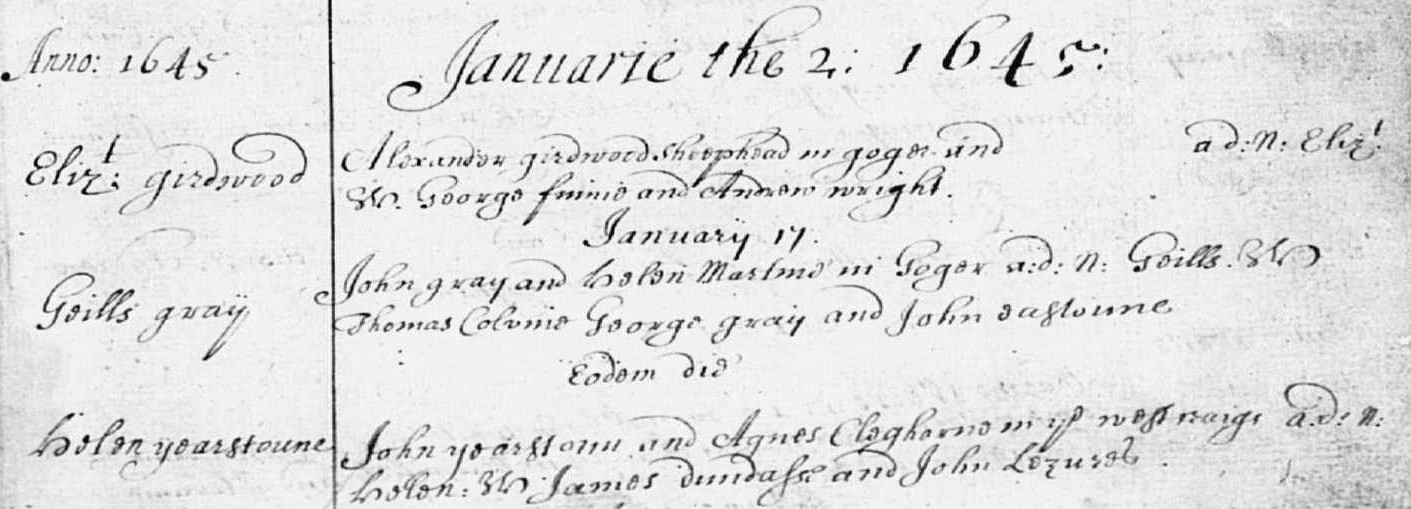 Anno: 1645
Januarie the 2: 1645:
Eliz:t girdwood
Alexander girdwood sheephead in goger and a d: N: Eliz:t
W. George finnie and Andrew wright.
January 17.
Geills gray
John gray and Helen Martine in Goger a:d: N: Geills. W
Thomas Colvine George gray and John eastoune
Eodem die
Helen yearstoune
John yearstoun and Agnes Cleghorne in ye west craigs a:d: N:
Helen: W James dundasse and John